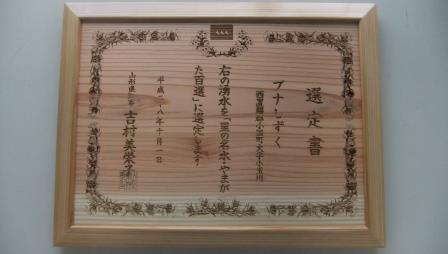 選定書
ブナしずく
西置賜郡小国町大字小玉川
右の湧水を「里の名水・やまが
た百選」に選定します
平成二八年十月一日
山形県知事 吉村美栄子